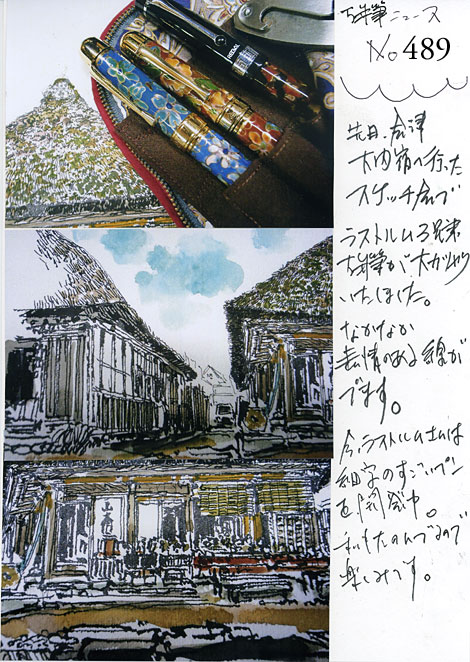 万年筆ニュース
No 489
先日、会津
大内宿へ行った
スケッチ会で
ラストルム3兄弟
万年筆が大カツヤク
いたしました。
なかなか
表情のある線が
でます。
今、ラストルム社は
細字のすごいペン
を開発中。
楽しみです。
山形屋